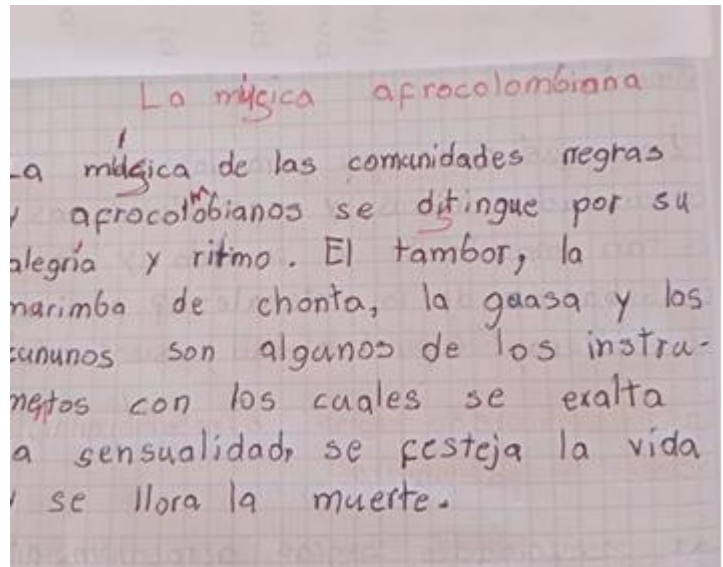 La música afrocolombiana
La música de las comunidades negras
y afrocolombianos se ditingue por su
alegría y ritmo. El tambor, la
marimba de chonta, la guasa y los
cununos son algunos de los instru-
metos con los cuales se exalta
a sensualidad, se festeja la vida
y se llora la muerte.